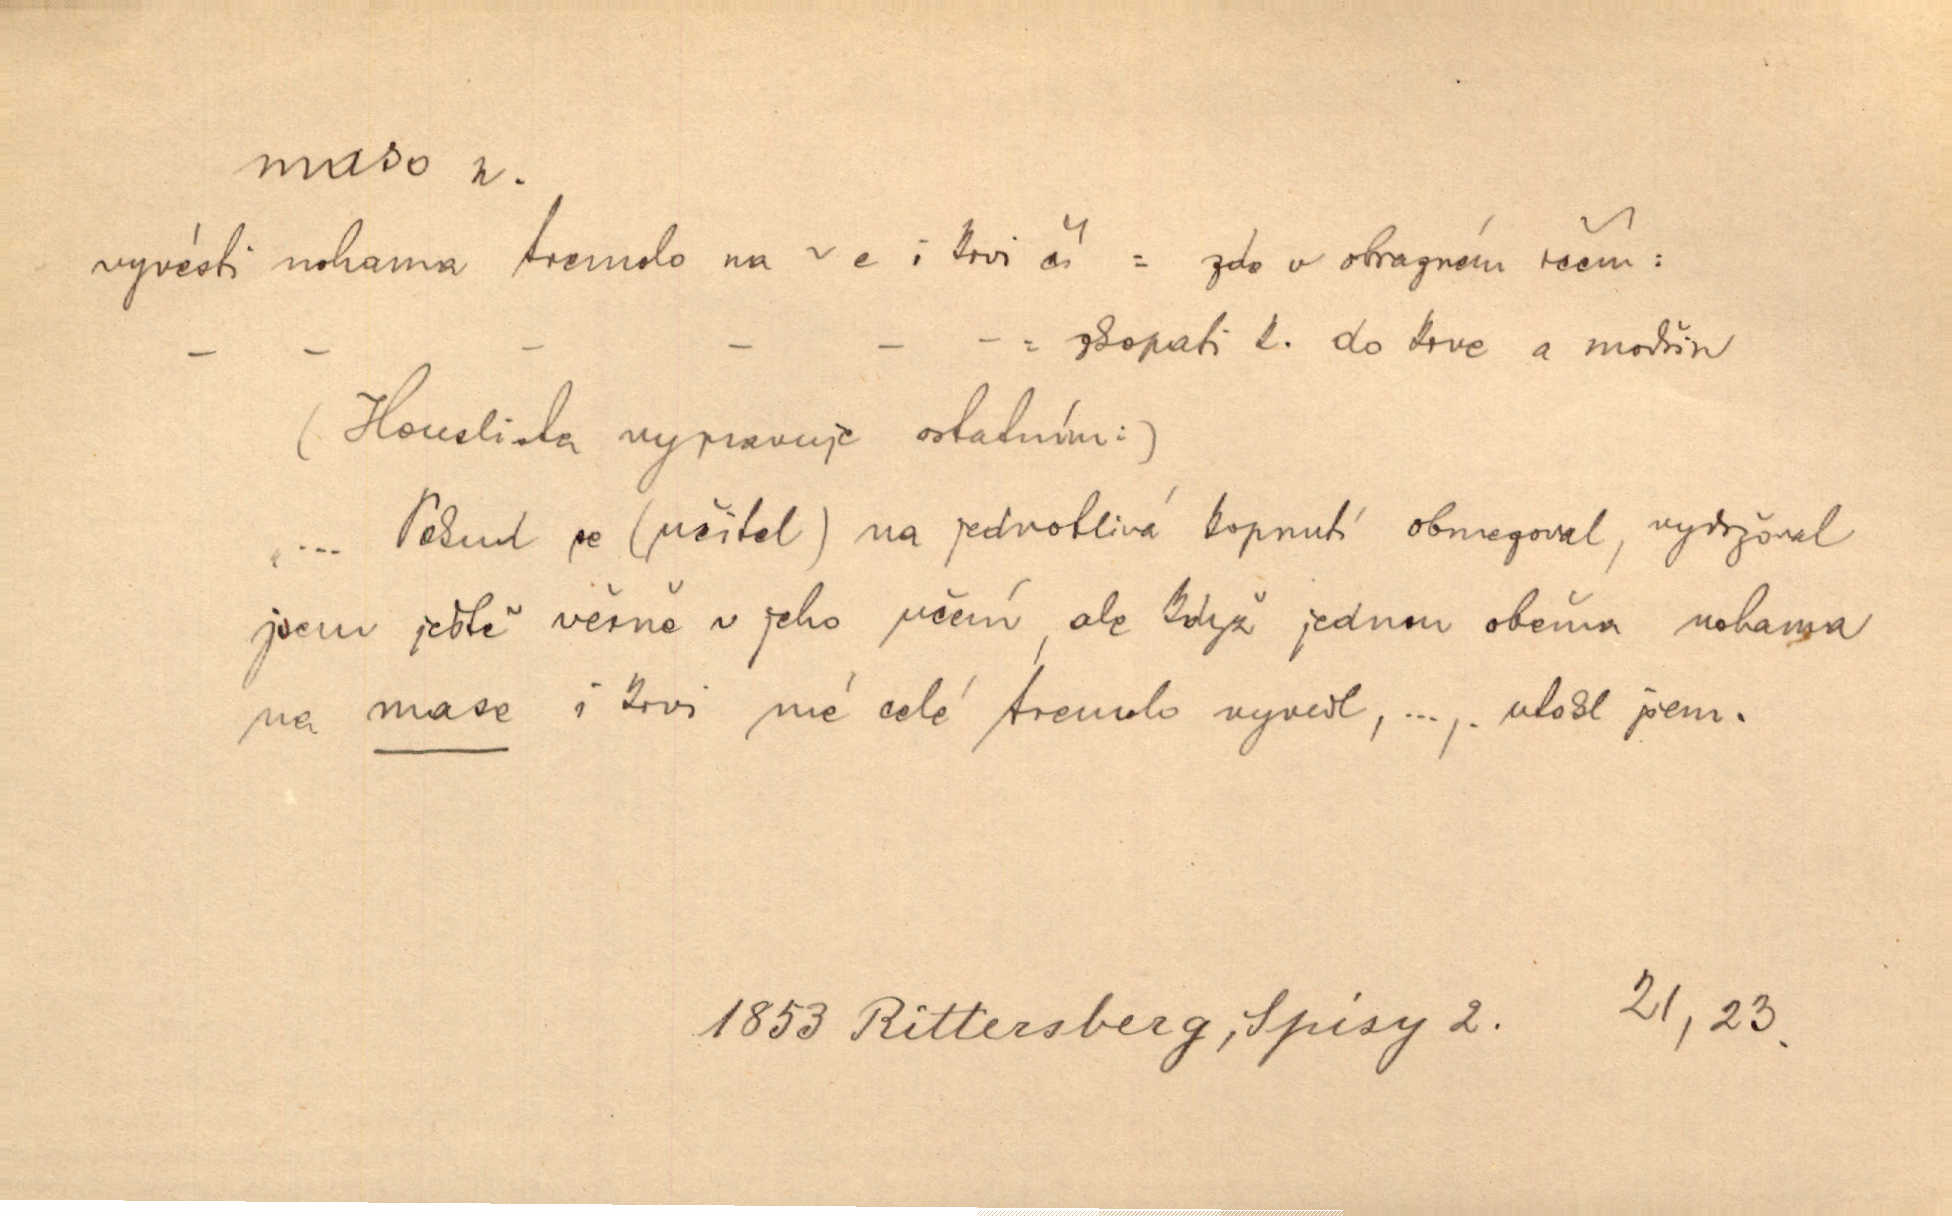 maso n.
vyvésti nohama tremolo na ~ e i krvi čí = zde v obrazném rčení:
– – – – – – = zkopati k. do krve a modřin
(Houslista vypravuje ostatním:)
„... Pokud se (učitel) na jednotlivá kopnutí obmezoval, vydržoval
jsem ještě věrně v jeho učení, ale když jednou oběma nohama
na mase i krvi mé celé tremolo vyvedl, ...,. utekl jsem.
1853 Rittersberg, Spisy 2. 21, 23.